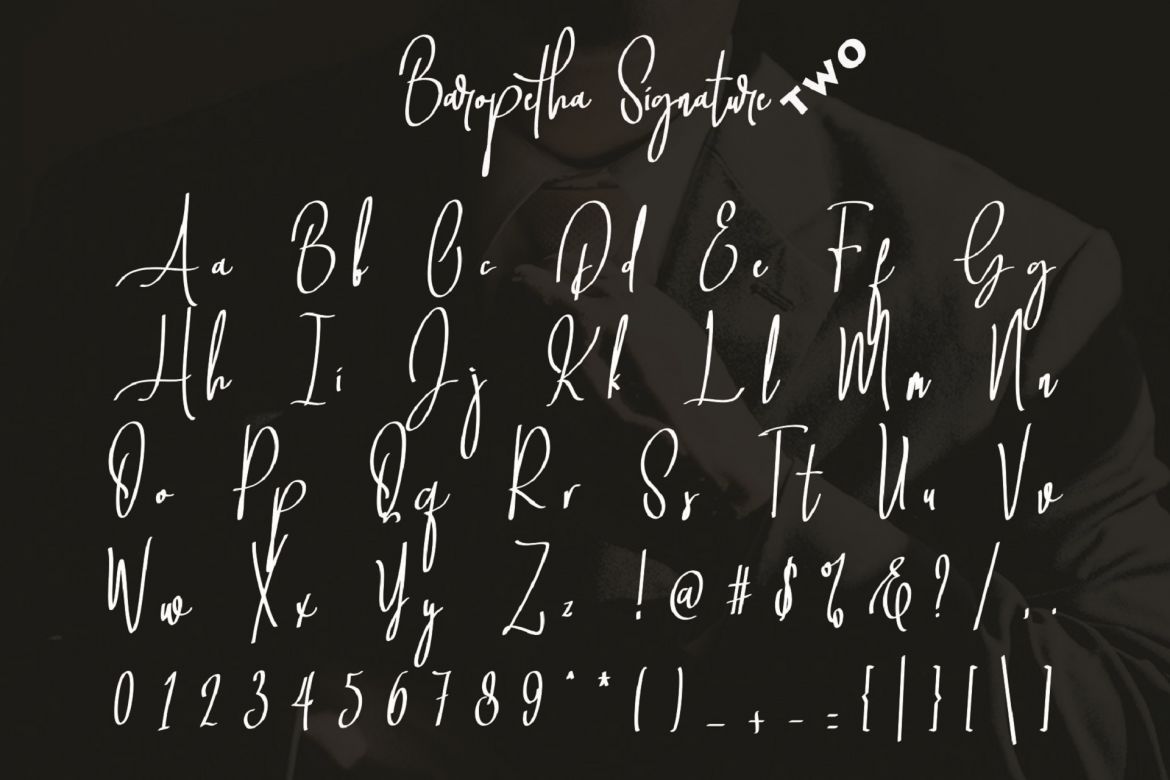 Baropetha Signature TWO
Aa Bb Cc Dd Ee Ff Gg
Hh Ii Jj Kk Ll Mm Nn
Oo Pp Qq Rr Ss Tt Uu Vv
Ww Xx Yy Zz ! @ # $ % & ? / , .
0 1 2 3 4 5 6 7 8 9 ^ * ( ) _ + - = { | } [ \ ]